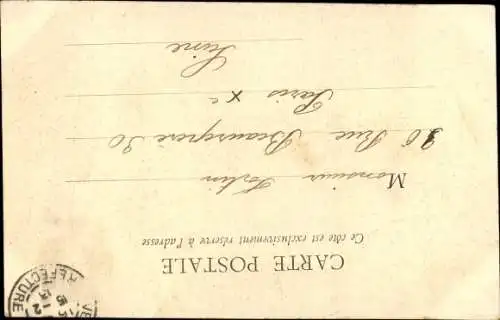 CARTE POSTALE
Ce côté est exclusivement réservé à l'adresse
Monsieur Fortin
36 Rue Beaurepaire 30
Paris Xe
Seine
PREFECTURE